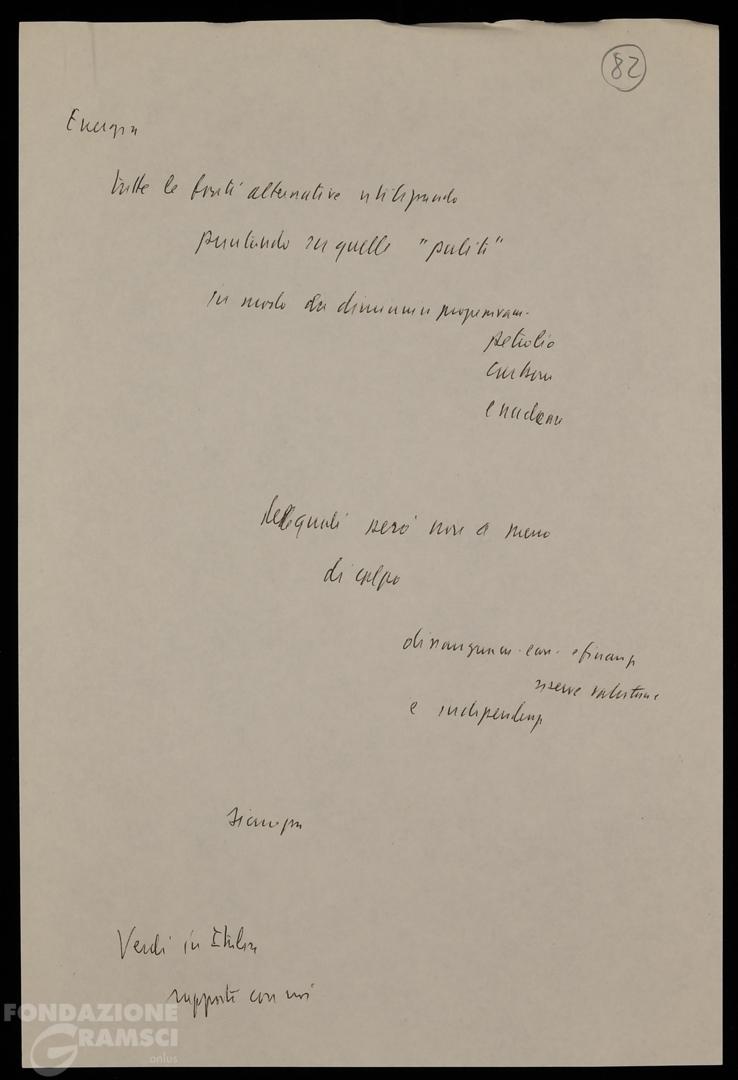 82
Energia
tutte le fonti alternative utilizzando
puntando su quelle "pulite"
in modo da diminuire progressivam.
petrolio
carbone
e nucleare
delle quali però non a meno
di colpo
e finanz
riserve valutarie
e indipendenz
sicurezza
Verdi in Italia
rapporti con noi
FONDAZIONE
GRAMSCI
onlus